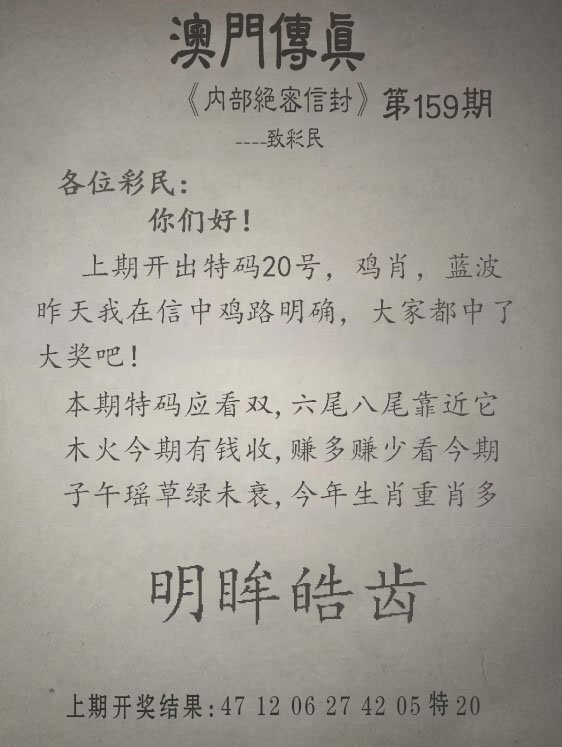 澳門傳真
《内部絕密信封》第159期
----致彩民
各位彩民：
你们好！
上期开出特码20号，鸡肖，蓝波
昨天我在信中鸡路明确，大家都中了
大奖吧！
本期特码应看双,六尾八尾靠近它
木火今期有钱收,赚多赚少看今期
子午瑶草绿未衰,今年生肖重肖多
明眸皓齿
上期开奖结果:47 12 06 27 42 05 特 20